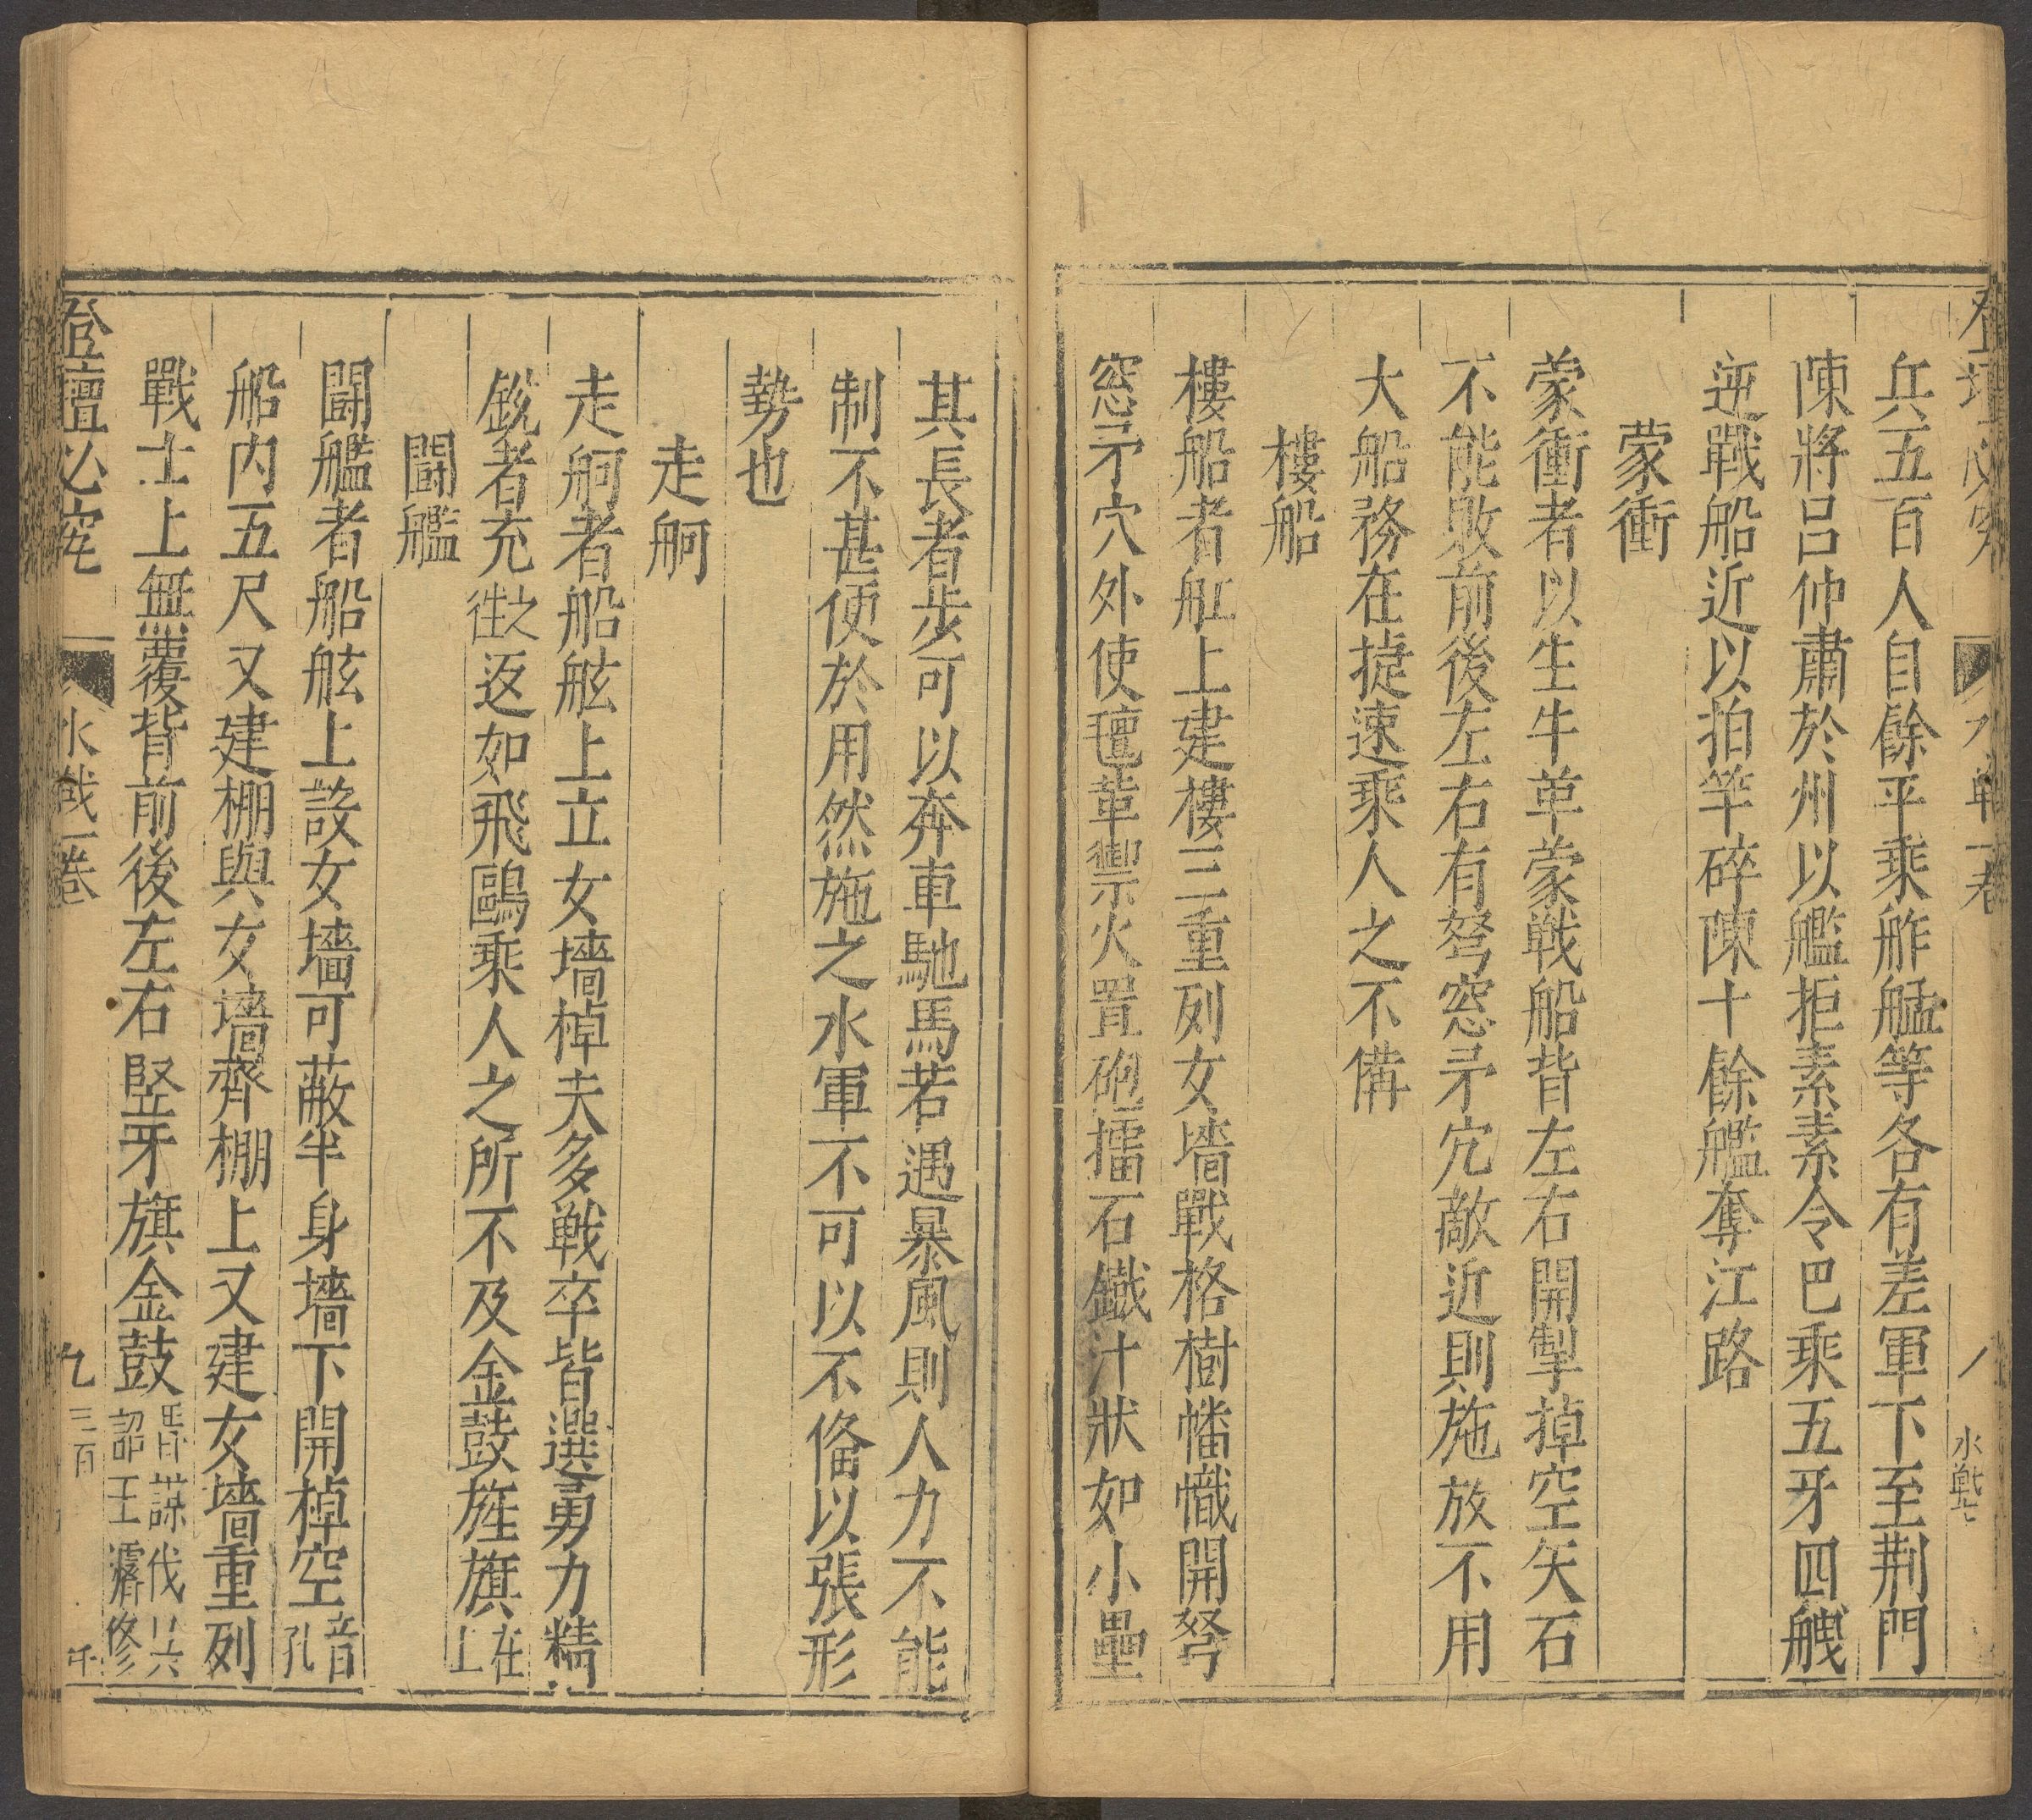 登壇必究 水戰一卷 水戰七
兵五百人自餘平乘舴艋等各有差軍下至荆門
陳將呂仲肅於州以艦拒素素令巴乘五牙四艘
逆戰船近以拍竿碎陳十餘艦奪江路
蒙衝
蒙衝者以生牛革蒙戦船背左右開掣掉空矢石
不能敗前後左右有弩窓矛穴敵近則施放不用
大船務在捷速乘人之不備
樓船
樓船者舡上建樓三重列女墻戰格樹幡幟開弩
窓矛穴外使氊革禦火置砲擂石鐵汁狀如小壘
其長者步可以奔車馳馬若遇暴風則人力不能
制不甚便於用然施之水軍不可以不偹以張形
勢也
走舸
走舸者船舷上立女墻棹夫多戦卒皆選勇力精
銳者充之徃返如飛鷗乘人之所不及金鼓旌旗在上
鬪艦
鬪艦者船舷上設女墻可蔽半身墻下開棹空音孔
船内五尺又建棚與女墻齊棚上又建女墻重列
戰士上無覆背前後左右竪牙旗金鼓晋謀伐吳詔王濬修
登壇必究 水戰一卷 九 三百